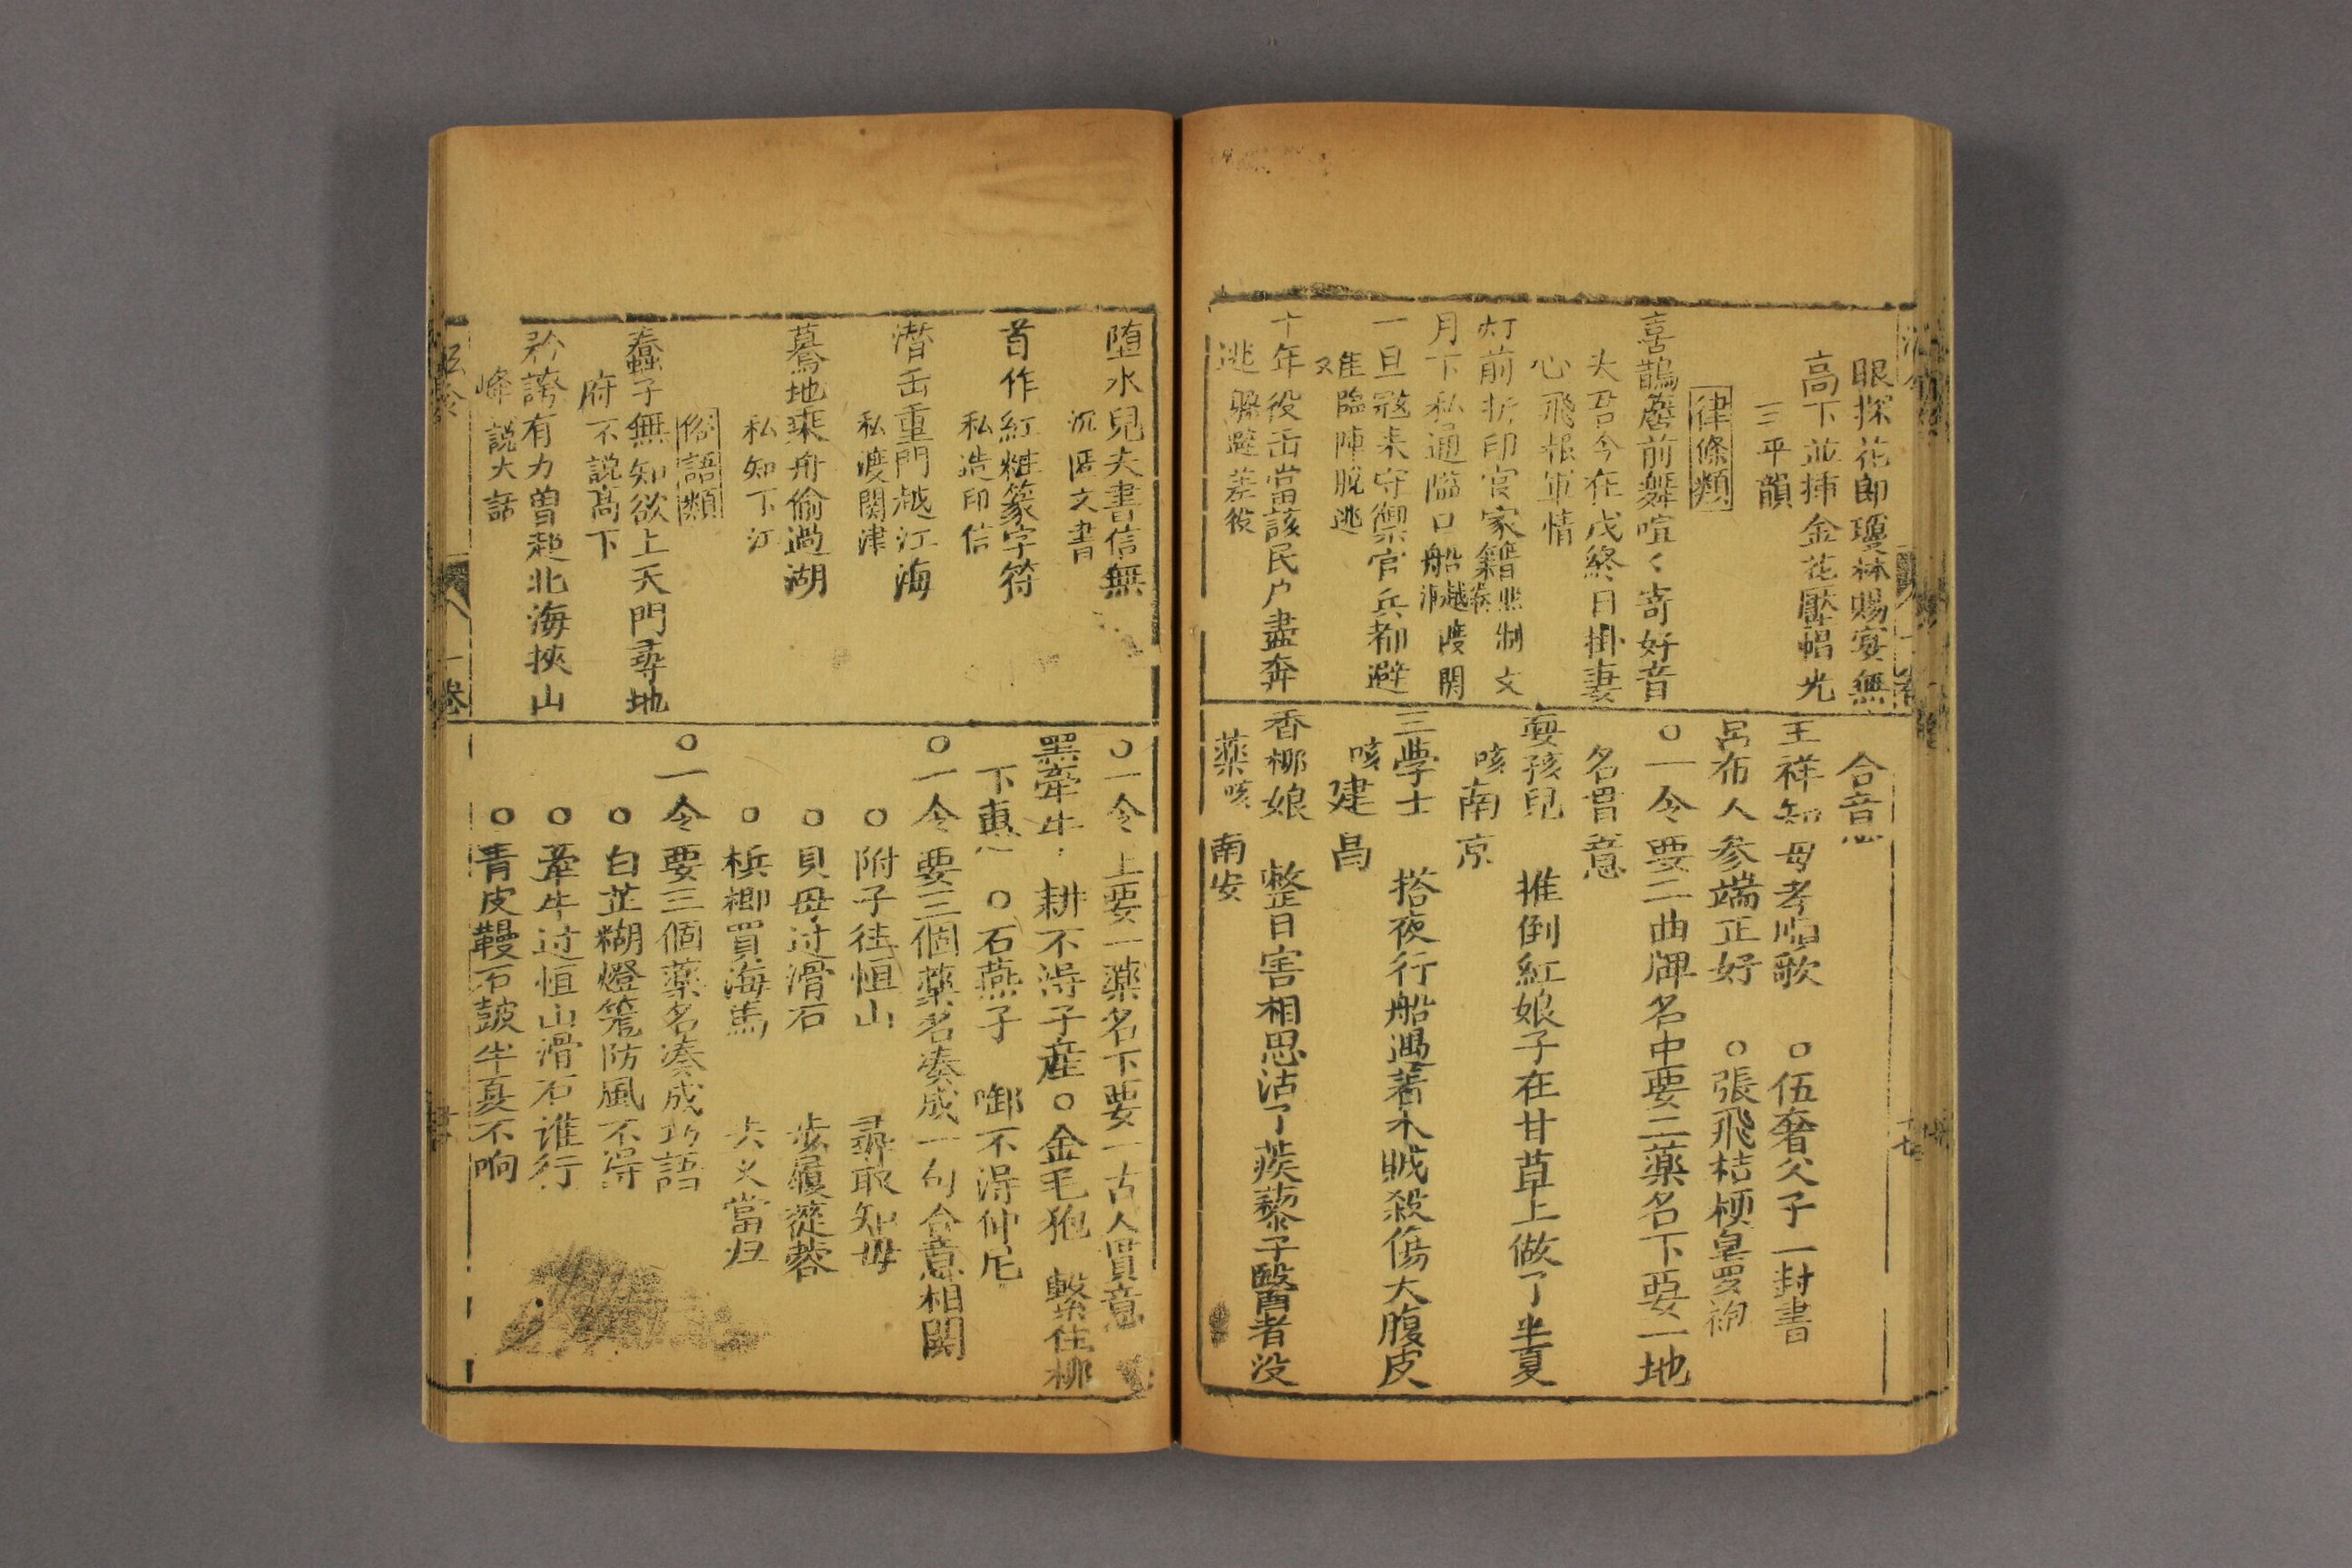 眼探花郎瓊林賜宴無
高下並揷金花壓帽光
三平韻
律條類
喜鵲簷前舞喧〻寄好音
夫君今在戍終日掛妻
心 飛報軍情
灯前折印官家籍 制文
月下私通隘口船 越渡關
一旦冦来守禦官兵都避
难 臨陣脫逃
十年役缶當該民户盡奔
逃 躱避差役
合音意
王祥知母孝順歌 ○伍奢父子一封書
呂布人参端正好 ○張飛桔梗皂罗袍
○一令要二曲牌名中要二藥名下要一地
名貫意
耍孩兒 推倒紅娘子在甘草上做了半夏
咳南京
三學士 搭夜行船遇着木賊殺傷大腹皮
咳建昌
香柳娘 整日害相思沽了蒺藜子醫者没
藥咳 南安
堕水兒夫書信無
沉匿文書
首作紅粧篆字符
私造印信
潜缶重門越江海
私渡関津
驀地乘舟偷過湖
私知下江
俗語類
蠢子無知欲上天門尋地
府 不説高下
矜誇有力曽超北海挾山
峰 説大話
○一令上要一藥名下要一古人貫意
黑牽牛 耕不得子産 ○金毛狍 繫住柳
下惠 ○石燕子 啣不得仲尼
○一令要三個藥名凑成一句合意相関
○附子往恒山 尋取知母
○貝母过滑石 步履蓯蓉
○梹榔買海馬 大火當归
○一令要三個藥名凑成巧語
○白芷糊燈篭防風不得
○牽牛过恒山滑石谁行
○青皮鞔石鼓半夏不响